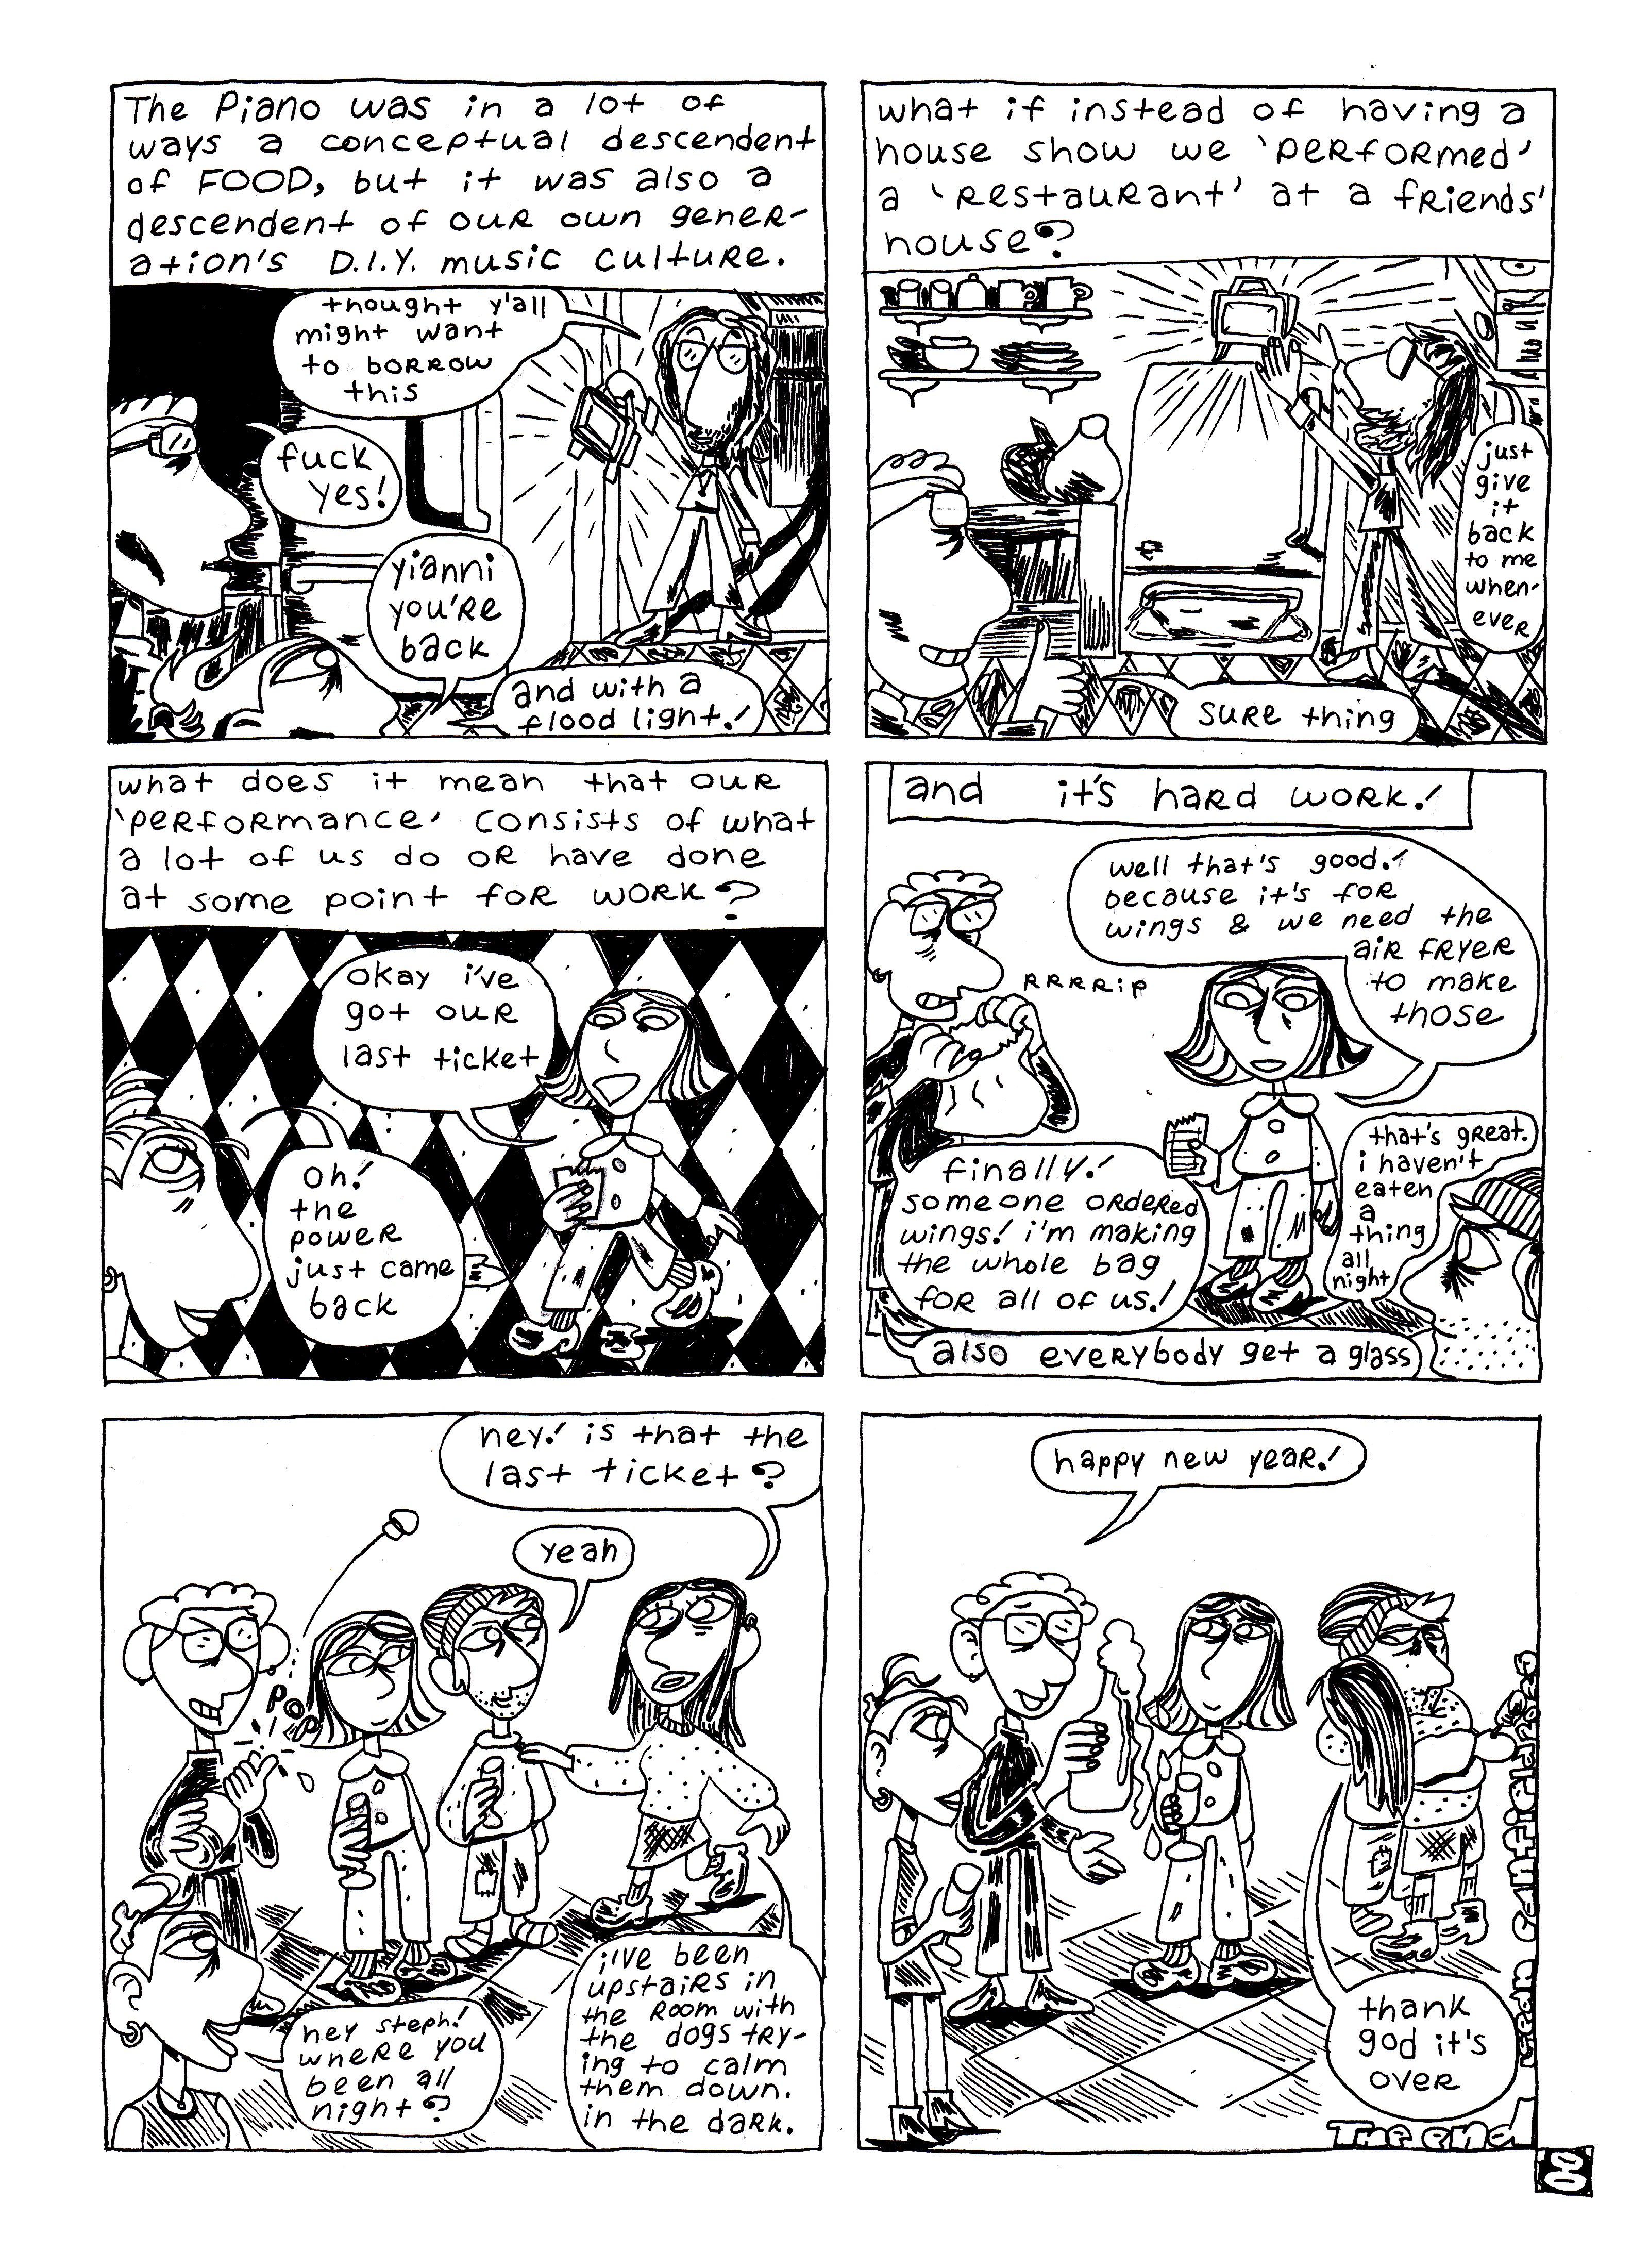 The Piano was in a lot of
ways a conceptual descendent
of FOOD, but it was also a
descendent of our own gener-
ation's D.I.Y. music culture.
thought y'all
might want
to borrow
this
fuck
yes!
yianni
you're
back
and with a
flood light!
what if instead of having a
house show we 'performed'
a 'restaurant' at a friends'
house?
just
give
it
back
to me
when-
ever
sure thing
what does it mean that our
'performance' consists of what
a lot of us do or have done
at some point for work?
okay i've
got our
last ticket
oh!
the
power
just came
back
and it's hard work!
well that's good!
because it's for
wings & we need the
air fryer
to make
those
RRRRip
finally!
someone ordered
wings! i'm making
the whole bag
for all of us!
that's great.
i haven't
eaten
a
thing
all
night
also everybody get a glass
hey! is that the
last ticket?
yeah
POP
hey steph!
where you
been all
night?
i've been
upstairs in
the room with
the dogs try-
ing to calm
them down.
in the dark.
happy new year!
thank
god it's
over
The end